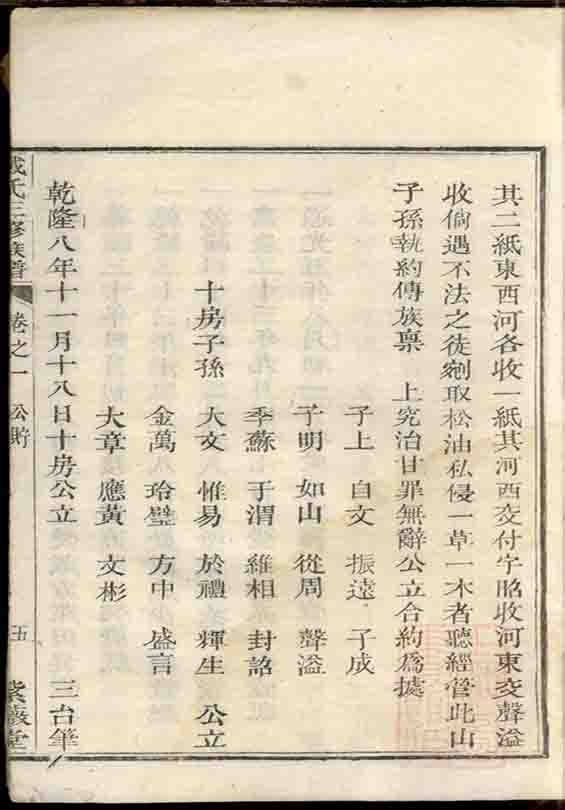 其二紙東西河各收一紙其河西交付字貽收河東交聲溢
收倘遇不法之徒剜取松油私侵一草一木者聽經管此山
子孫執約傳族稟 上究治甘罪無辭公立合約為據
子上 自文 振遠 子成
子明 如山 從周 聲溢
季蘇 于渭 維相 封詔
十房子孫 大文 惟易 於禮 輝生 公立
金萬 玲璧 方中 盛言
大章 應黃 文彬
乾隆八年十一月十八日十房公立 三台筆
氏三修族譜 卷之一 公財 五 紫薇堂